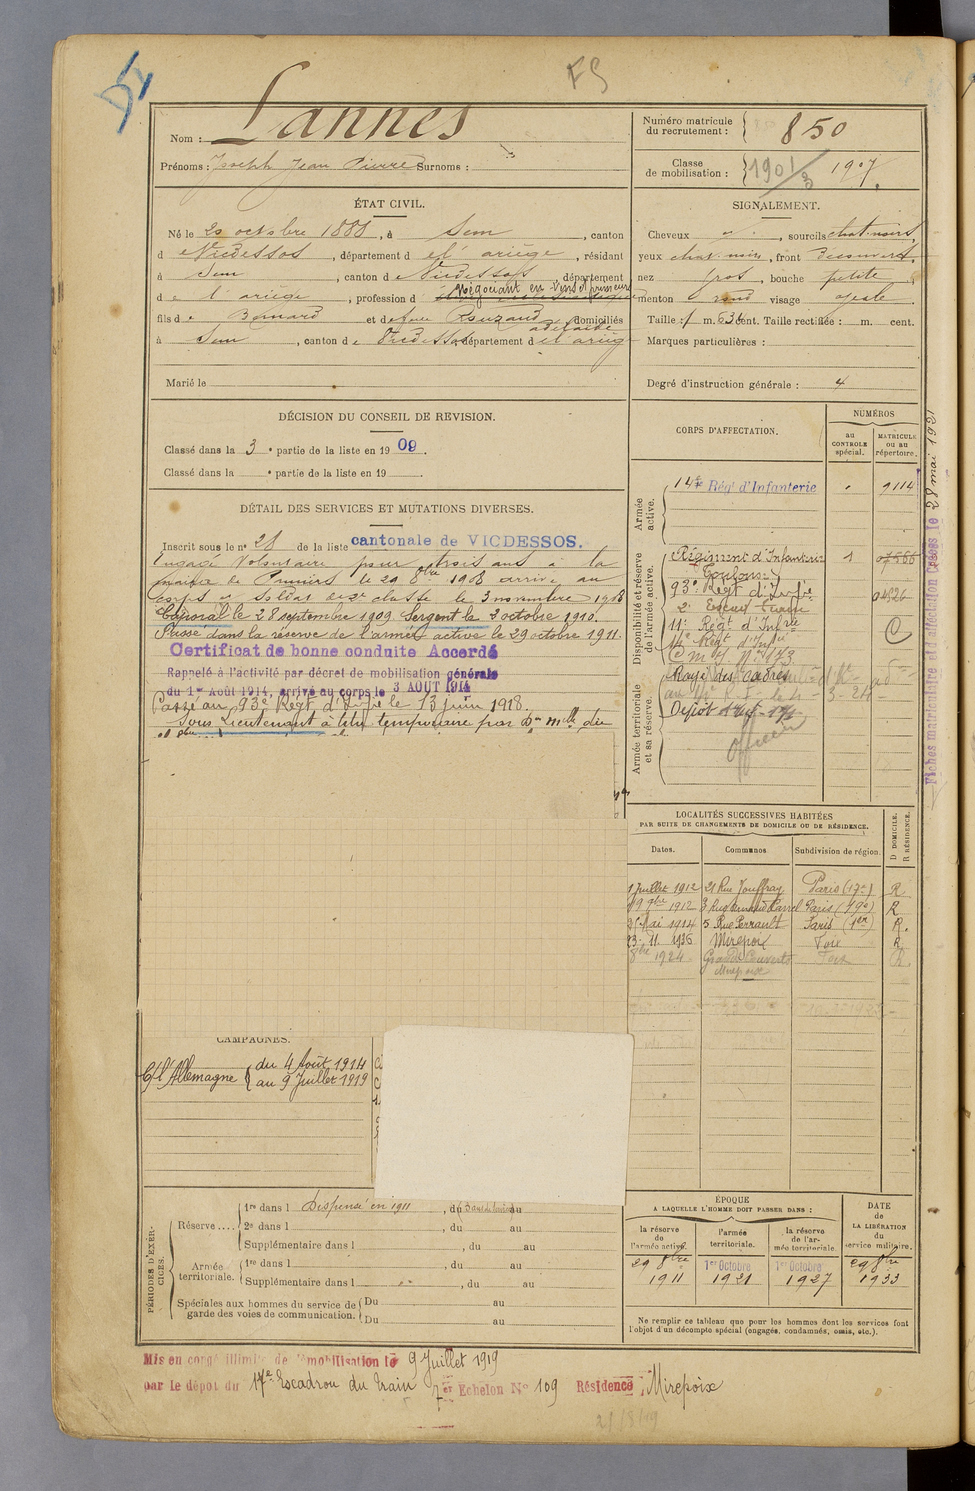 FS
Nom : Lannes
Prénoms : Joseph Jean Pierre Surnoms :
Numéro matricule du recrutement : 850
Classe de mobilisation : 1901/3 1907
ÉTAT CIVIL.
Né le 20 octobre 1888, à Sem, canton
d Vicdessos, département de l'ariège, résidant
à Sem, canton de Vicdessos, département
de l'ariège, profession d Négociant en Vins et primeurs
fils de Bernard et de feue Rouzaud adelaïde domiciliés
à Sem, canton de Vicdessos département de l'ariège
Marié le
SIGNALEMENT.
Cheveux , sourcils chat. noirs,
yeux chat. noirs, front découvert,
nez gros, bouche petite
menton rond visage ovale
Taille : 1 m. 63 cent. Taille rectifiée : m. cent.
Marques particulières :
Degré d'instruction générale : 4
DÉCISION DU CONSEIL DE REVISION.
Classé dans la 3e partie de la liste en 1909.
Classé dans la e partie de la liste en 19
DÉTAIL DES SERVICES ET MUTATIONS DIVERSES.
Inscrit sous le n° 28 de la liste cantonale de VICDESSOS.
Engagé Volontaire pour trois ans à la
mairie de Pamiers le 29 8bre 1908 arrivé au
corps et Soldat de 2e classe le 3 novembre 1908
Caporal le 28 septembre 1909 Sergent le 3 octobre 1910.
Passé dans la réserve de l'armée active le 29 octobre 1911.
Certificat de bonne conduite Accordé
Rappelé à l'activité par décret de mobilisation générale
du 1er Août 1914, arrivé au corps le 3 AOUT 1914
Passé au 93e Régt d'Infie le 13 juin 1918.
Sous Lieutenant à titre temporaire par don mlle du
CORPS D'AFFECTATION.
NUMÉROS
au CONTROLE spécial.
MATRICULE ou au répertoire.
Armée active.
14e Régt d'Infanterie 9114
Disponibilité et réserve de l'armée active.
Régiment d'Infanterie 1
Toulouse
93e Régt d'Infie
2e Escad. train
11e Régt d'Infrie C
14e Régt d'Inf
Rayé des cadres
Armée territoriale et sa réserve.
Dépôt d'Inf. 171
Officier
Fiches matriculaire et d'affectation créées le 28 mai 1921
LOCALITÉS SUCCESSIVES HABITÉES
PAR SUITE DE CHANGEMENTS DE DOMICILE OU DE RÉSIDENCE.
Dates. Communes Subdivision de région. D DOMICILE. R RÉSIDENCE.
1 Juillet 1912 21 Rue Jouffroy Paris (17e) R
19 9bre 1912 3 Rue Armand Carrel Paris (19e) R
Mai 1914 5 Rue Perrault Paris (1er) R.
23. 11. 1936 Mirepoix Foix R
8bre 1924 Grands Couverts Mirepoix Foix R
CAMPAGNES.
C/ l'Allemagne { du 4 Août 1914
au 9 Juillet 1919
PÉRIODES D'EXERCICES.
Réserve .... 1re dans l Dispensé en 1911, du au
2e dans l , du au
Supplémentaire dans l , du au
Armée territoriale. 1re dans l , du au
Supplémentaire dans l , du au
Spéciales aux hommes du service de garde des voies de communication. Du au
Du au
ÉPOQUE
A LAQUELLE L'HOMME DOIT PASSER DANS :
la réserve de l'armée active. l'armée territoriale. la réserve de l'armée territoriale.
DATE de LA LIBÉRATION du service militaire.
29 8bre 1911 1er Octobre 1921 1er Octobre 1927 29 8bre 1933
Ne remplir ce tableau que pour les hommes dont les services font
l'objet d'un décompte spécial (engagés, condamnés, omis, etc.).
Mis en congé illimité de démobilisation le 9 Juillet 1919
par le dépôt du 17e Escadron du train 7er Echelon N° 109 Résidence : Mirepoix
21/8/19